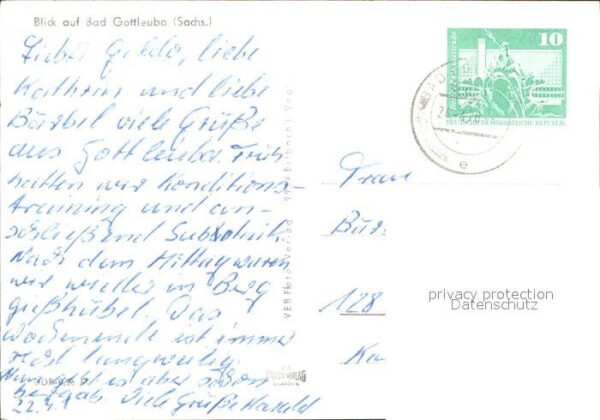 Blick auf Bad Gottleuba (Sachs.)
Liebe Gelda, liebe
Kathrin und liebe
Bärbel viele Grüße
aus Gottleuba. Früh
hatten wir Konditions-
training und an-
schließend Subbotnik.
Nach dem Mittag waren
wir wieder in Berg
gießhübel. Das
Wochenende ist immer
recht langweilig.
Nun geht es aber schon
bergab. Viele Grüße Harald
22.4.
VEB Foto-Verlag 9937 Erlbach
10
DEUTSCHE DEMOKRATISCHE REPUBLIK
BAD GO
e
Frau
Bär
128
Ka
privacy protection
Datenschutz